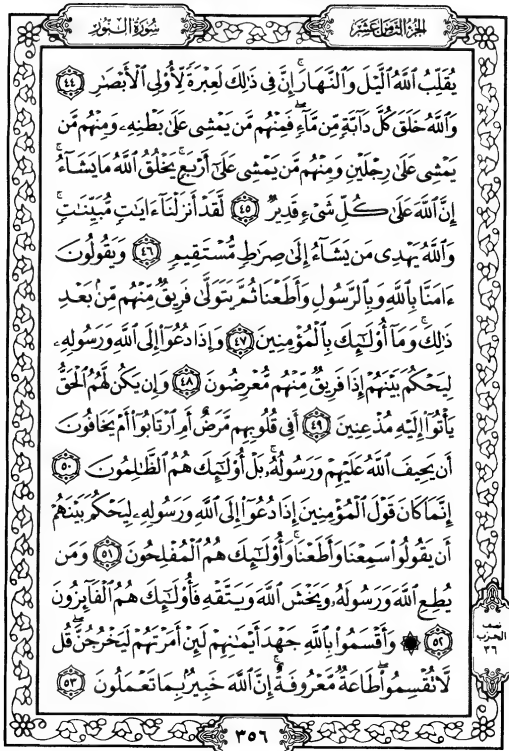 سُورَةُ النُّورِ
الجُزءُ الثَّامِنَ عَشَرَ
يُقَلِّبُ ٱللَّهُ ٱلَّيۡلَ وَٱلنَّهَارَۚ إِنَّ فِي ذَٰلِكَ لَعِبۡرَةٗ لِّأُوْلِي ٱلۡأَبۡصَٰرِ ٤٤
وَٱللَّهُ خَلَقَ كُلَّ دَآبَّةٖ مِّن مَّآءٖۖ فَمِنۡهُم مَّن يَمۡشِي عَلَىٰ بَطۡنِهِۦ وَمِنۡهُم مَّن
يَمۡشِي عَلَىٰ رِجۡلَيۡنِ وَمِنۡهُم مَّن يَمۡشِي عَلَىٰٓ أَرۡبَعٖۚ يَخۡلُقُ ٱللَّهُ مَا يَشَآءُۚ
إِنَّ ٱللَّهَ عَلَىٰ كُلِّ شَيۡءٖ قَدِيرٞ ٤٥ لَّقَدۡ أَنزَلۡنَآ ءَايَٰتٖ مُّبَيِّنَٰتٖۚ
وَٱللَّهُ يَهۡدِي مَن يَشَآءُ إِلَىٰ صِرَٰطٖ مُّسۡتَقِيمٖ ٤٦ وَيَقُولُونَ
ءَامَنَّا بِٱللَّهِ وَبِٱلرَّسُولِ وَأَطَعۡنَا ثُمَّ يَتَوَلَّىٰ فَرِيقٞ مِّنۡهُم مِّنۢ بَعۡدِ
ذَٰلِكَۚ وَمَآ أُوْلَٰٓئِكَ بِٱلۡمُؤۡمِنِينَ ٤٧ وَإِذَا دُعُوٓاْ إِلَى ٱللَّهِ وَرَسُولِهِۦ
لِيَحۡكُمَ بَيۡنَهُمۡ إِذَا فَرِيقٞ مِّنۡهُم مُّعۡرِضُونَ ٤٨ وَإِن يَكُن لَّهُمُ ٱلۡحَقُّ
يَأۡتُوٓاْ إِلَيۡهِ مُذۡعِنِينَ ٤٩ أَفِي قُلُوبِهِم مَّرَضٌ أَمِ ٱرۡتَابُوٓاْ أَمۡ يَخَافُونَ
أَن يَحِيفَ ٱللَّهُ عَلَيۡهِمۡ وَرَسُولُهُۥۚ بَلۡ أُوْلَٰٓئِكَ هُمُ ٱلظَّٰلِمُونَ ٥٠
إِنَّمَا كَانَ قَوۡلَ ٱلۡمُؤۡمِنِينَ إِذَا دُعُوٓاْ إِلَى ٱللَّهِ وَرَسُولِهِۦ لِيَحۡكُمَ بَيۡنَهُمۡ
أَن يَقُولُواْ سَمِعۡنَا وَأَطَعۡنَاۚ وَأُوْلَٰٓئِكَ هُمُ ٱلۡمُفۡلِحُونَ ٥١ وَمَن
يُطِعِ ٱللَّهَ وَرَسُولَهُۥ وَيَخۡشَ ٱللَّهَ وَيَتَّقۡهِ فَأُوْلَٰٓئِكَ هُمُ ٱلۡفَآئِزُونَ
٥٢ ۞ وَأَقۡسَمُواْ بِٱللَّهِ جَهۡدَ أَيۡمَٰنِهِمۡ لَئِنۡ أَمَرۡتَهُمۡ لَيَخۡرُجُنَّۖ قُل
لَّا تُقۡسِمُواْۖ طَاعَةٞ مَّعۡرُوفَةٌۚ إِنَّ ٱللَّهَ خَبِيرُۢ بِمَا تَعۡمَلُونَ ٥٣
نصف
الحزب
٣٦
٣٥٦